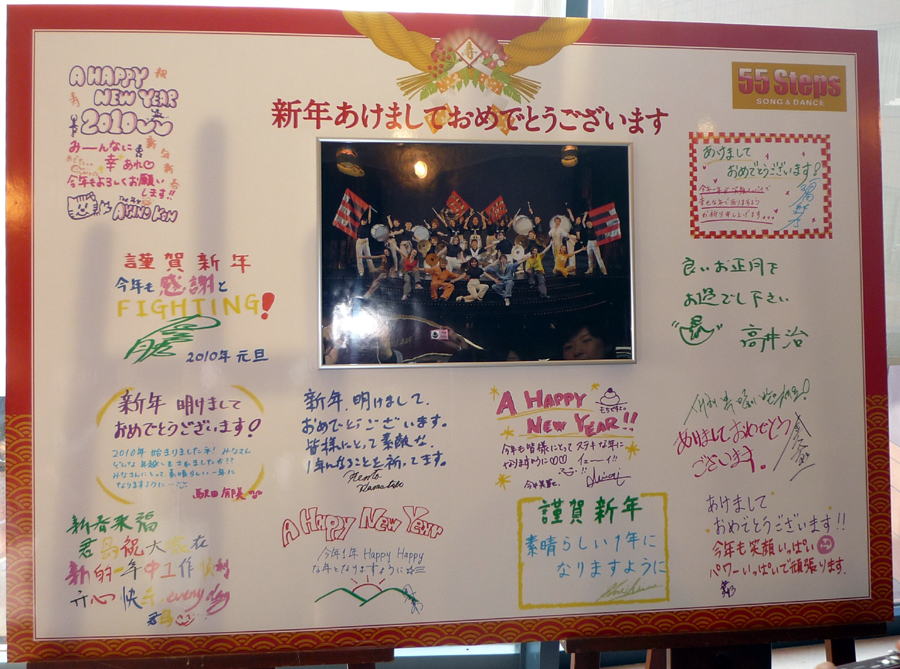 新年あけましておめでとうございます
55 Steps
SONG & DANCE
A HAPPY
NEW YEAR
2010
みーんなに
幸あれ♡
今年もよろしくお願い
します!!
あけまして
おめでとうございます!
謹賀新年
今年も感謝と
FIGHTING!
2010年 元旦
良いお正月を
お過ごし下さい
高井治
新年 明けまして
おめでとうございます!
2010年 始まりましたネ! みなさん
みなさんにとって素晴らしい一年に
なりますように
新年、明けまして、
おめでとうございます。
皆様にとって素敵な、
1年になることを祈ってます。
A HAPPY
NEW YEAR!!
今年も皆様にとってステキな年に
なりますように♡♡♡
あけましておめでとう
ございます。
新春来福
君島祝大家在
新的一年中工作順利
开心快乐 every day
君島
A HAPPY NEW YEAR
今年1年 Happy Happy
な年となりますように☆
謹賀新年
素晴らしい1年に
なりますように
あけまして
おめでとうございます!!
今年も笑顔いっぱい
パワーいっぱいで頑張ります。